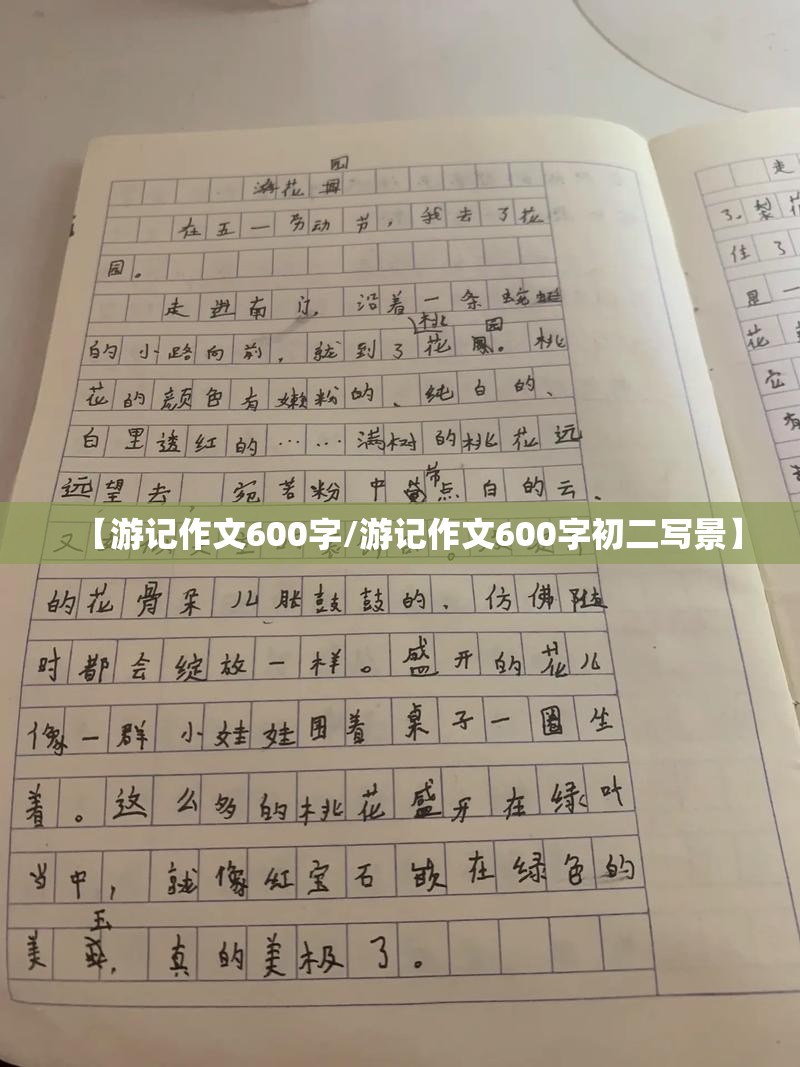 园
游花
在五一劳动节，我去了花
园。
走进南门，沿着一条蜿蜒
的小路向前，就到了桃花园。桃
花的颜色有嫩粉的、纯白的、
白里透红的……满树的桃花远
远望去，宛若粉中带点白的云。
【游记作文600字/游记作文600字初二写景】
又
的花骨朵儿胀鼓鼓的，仿佛随
时都会绽放一样。盛开的花儿
像一群小娃娃围着桌子一圈坐
着。这么多的桃花盛开在绿叶
当中，就像红宝石嵌在绿色的
美玉，真的美极了。
走
了。梨花
住了
是一
花
它
有